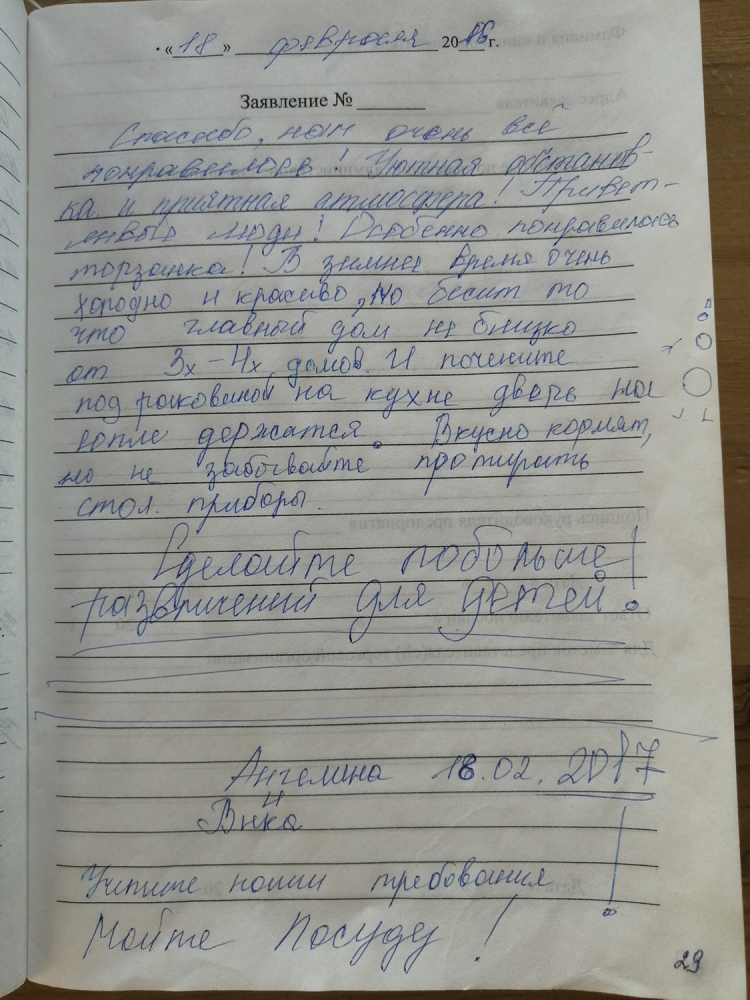 • « 18 » февраля 2016 г.
Заявление №
Спасибо, нам очень всё
понравилось! Уютная обстанов-
ка и приятная атмосфера! Привет-
ливые люди! Особенно понравилась
тарзанка! В зимнее время очень
холодно и красиво, но бесит то
что главный дом не близко
от 3х-4х домов. И почените
под раковиной на кухне дверь на
сопле держатся. Вкусно кормят,
но не забывайте протирать
стол. приборы.
Сделайте побольше
развличений для детей!
Ангелина 18.02.2017
и
Вика
Учтите наши требования !
Мойте посуду !
29